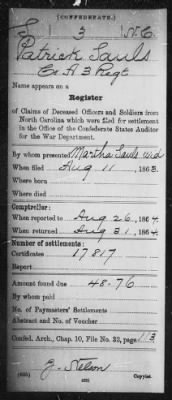 (CONFEDERATE.)
S 3 N C
Patrick Sauls
Co A 3 Regt
Name appears on a
Register
of Claims of Deceased Officers and Soldiers from
North Carolina which were filed for settlement
in the Office of the Confederate States Auditor
for the War Department.
By whom presented Martha Sauls wid
When filed Aug 11, 1863.
Where born
Where died
Comptroller:
When reported to Aug 26, 1864.
When returned Aug 31, 1864.
Number of settlements:
Certificate 17817
Report
Amount found due 48.76
By whom paid
No. of Paymasters' Settlements
Abstract and No. of Voucher
Confed. Arch., Chap. 10, File No. 32, page 113
Copyist.